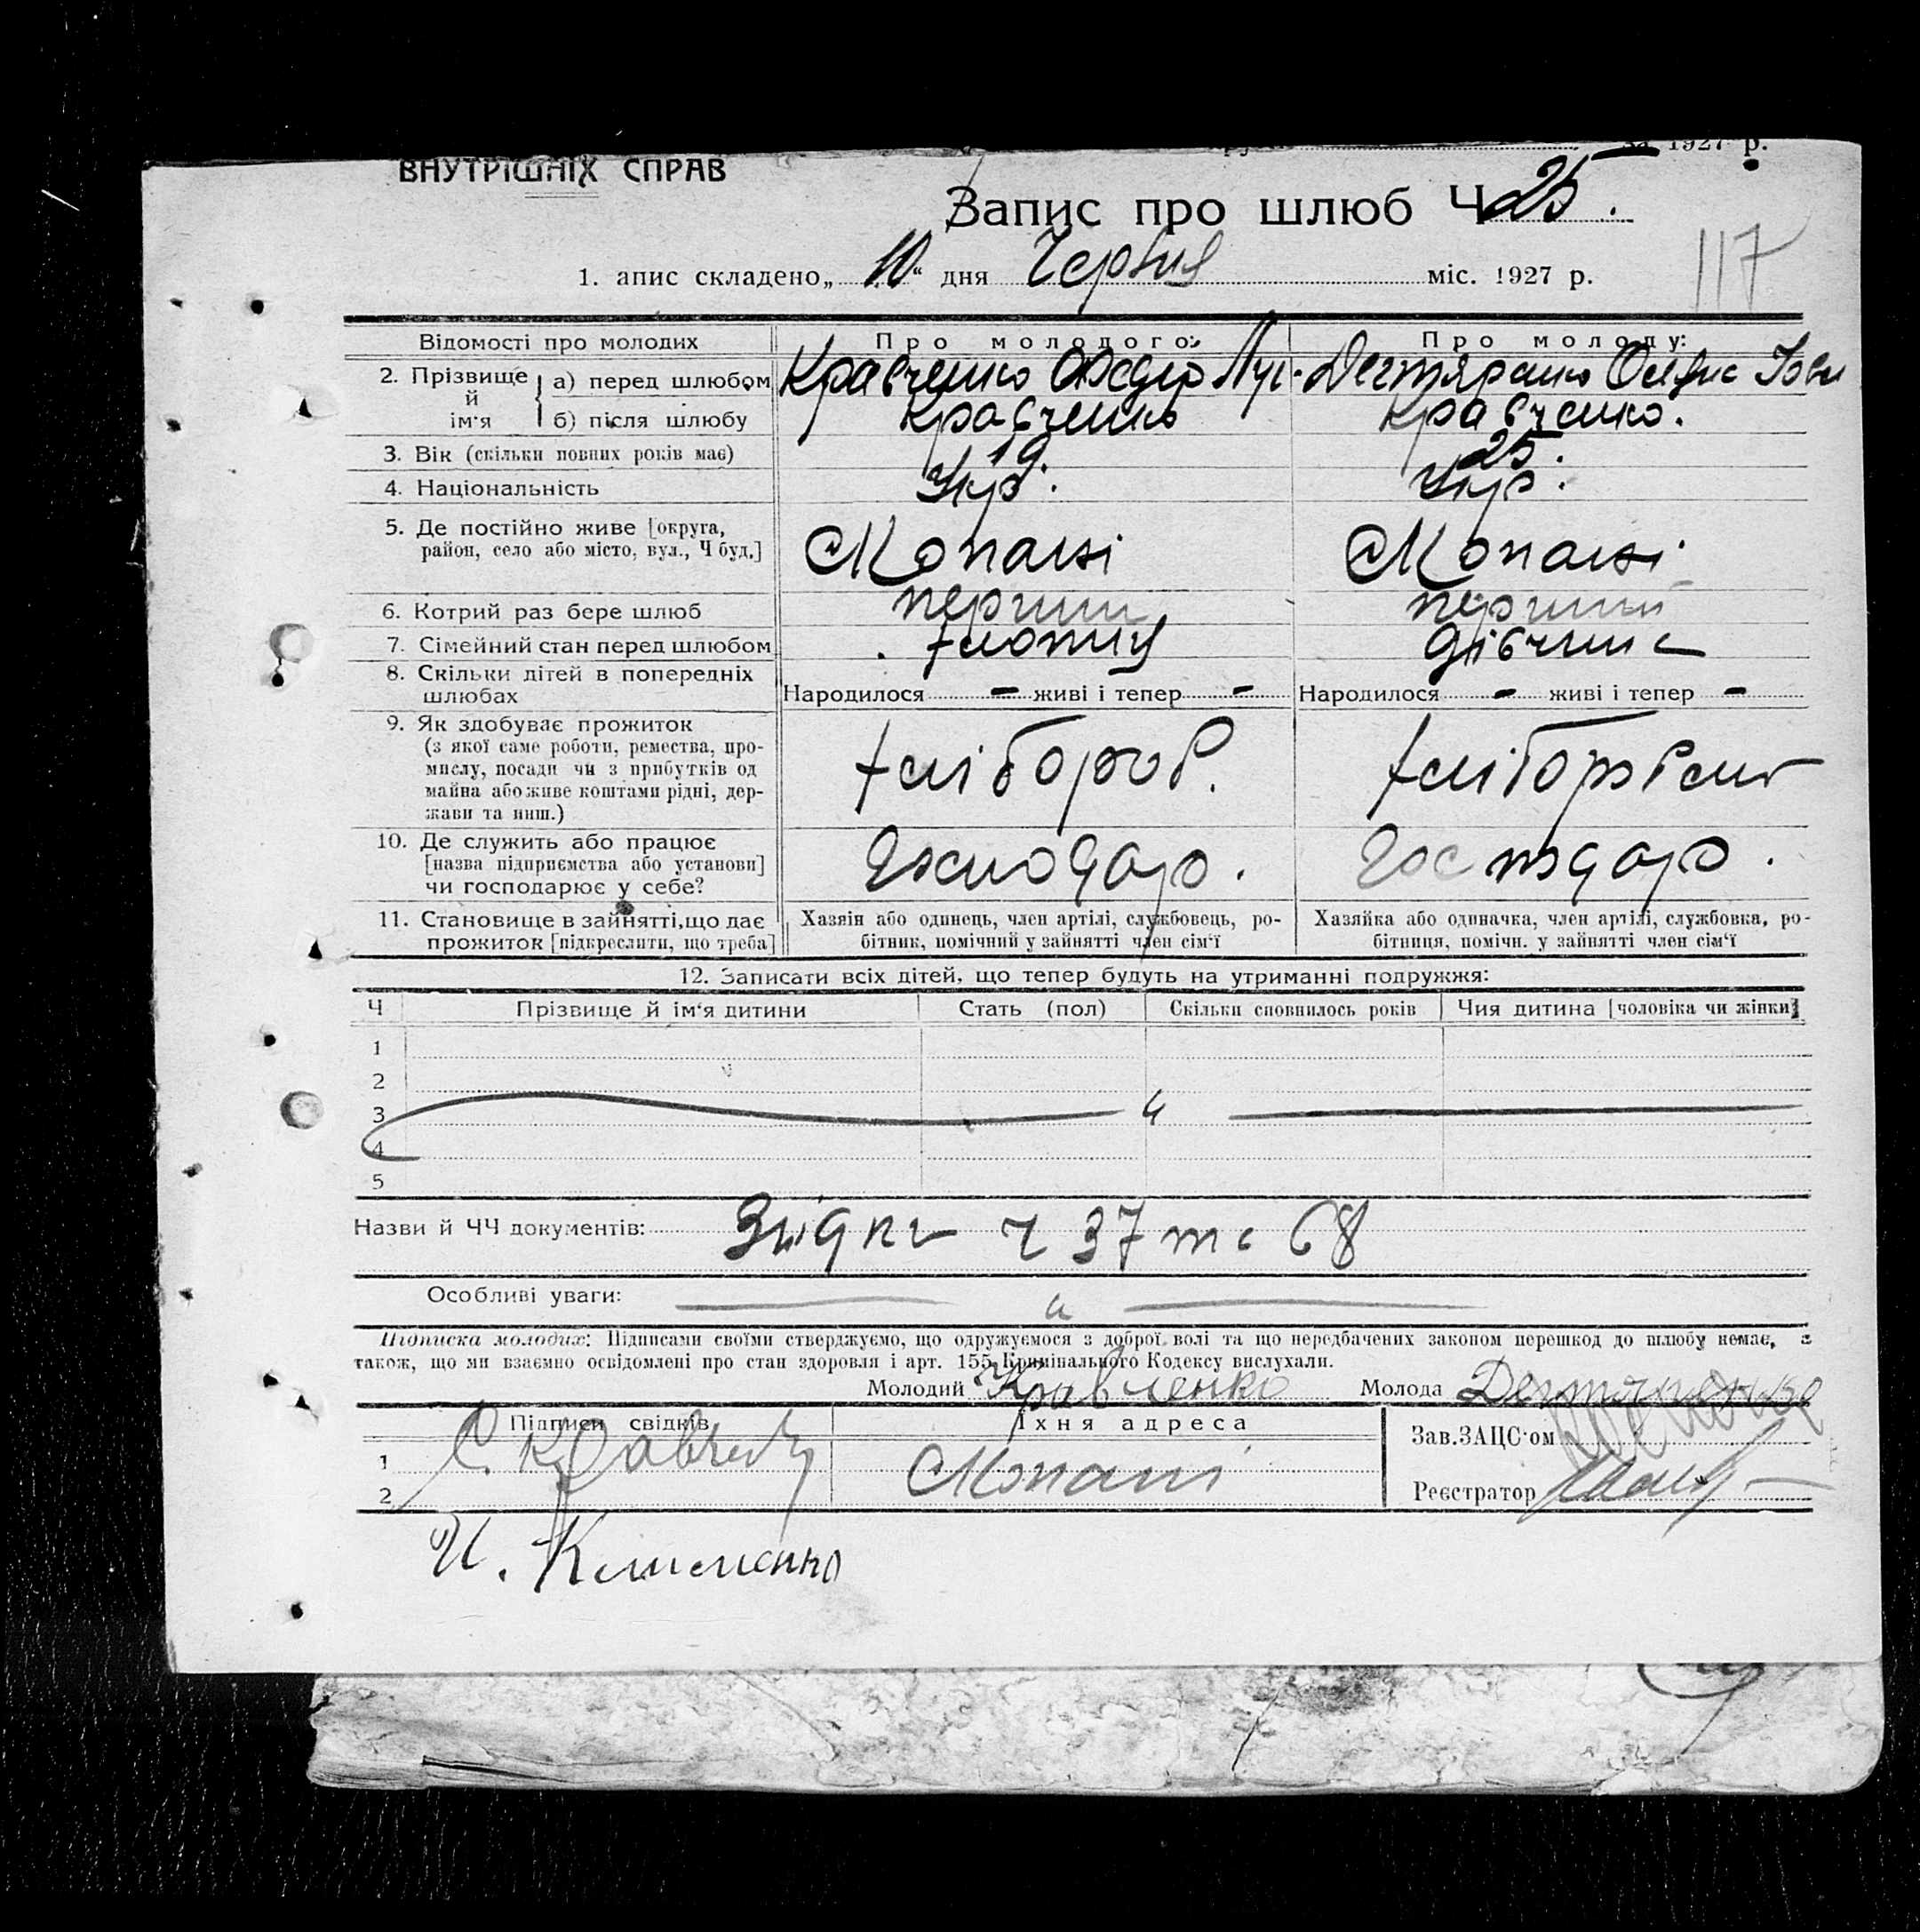 ВНУТРІШНІХ СПРАВ
за 1927 р.
Запис про шлюб Ч 25.
117
1. апис складено „10“ дня Червня міс. 1927 р.
Відомості про молодих Про молодого: Про молоду:
2. Прізвище й ім'я а) перед шлюбом Кравченко Федір Дегтяренко
б) після шлюбу Кравченко Кравченко.
3. Вік (скільки повних років має) 19. 25.
4. Національність Укр. Укр.
5. Де постійно живе [округа, район, село або місто, вул., Ч буд.] Мопалі Мопалі
6. Котрий раз бере шлюб перший перший
7. Сімейний стан перед шлюбом хлопець дівчина
8. Скільки дітей в попередніх шлюбах Народилося - живі і тепер - Народилося - живі і тепер -
9. Як здобуває прожиток
(з якої саме роботи, ремества, про-
мислу, посади чи з прибутків од
майна або живе коштами рідні, дер-
жави та инш.)
хлібороб. хліборобство
10. Де служить або працює
[назва підприємства або установи]
чи господарює у себе?
Господар. Господар.
11. Становище в зайнятті, що дає
прожиток [підкреслити, що треба]
Хазяін або одинець, член артілі, службовець, ро-
бітник, помічний у зайнятті член сім'ї
Хазяйка або одиначка, член артілі, службовка, ро-
бітниця, помічн. у зайнятті член сім'ї
12. Записати всіх дітей, що тепер будуть на утриманні подружжя:
Ч Прізвище й ім'я дитини Стать (пол) Скільки сповнилось років Чия дитина [чоловіка чи жінки]
1
2
3
4
5
Назви й ЧЧ документів: ч 37 та 68
Особливі уваги:
Підписка молодих: Підписами своїми стверджуємо, що одружуємося з доброї волі та що передбачених законом перешкод до шлюбу немає, а
також, що ми взаємно освідомлені про стан здоровля і арт. 155 Кримінального Кодексу вислухали.
Молодий Кравченко Молода Дегтяренко
Підписи свідків Їхня адреса Зав.ЗАЦС'ом
1 С. Кравченко Мопалі
2 Реєстратор
И. Клименко